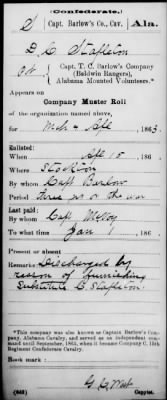 (Confederate.)
S Capt. Barlow's Co., Cav. Ala.
D. C. Stapleton
Capt. T. C. Barlow's Company
(Baldwin Rangers),
Alabama Mounted Volunteers.*
Appears on
Company Muster Roll
of the organization named above,
for Mch & Apl, 1863
Enlisted:
When Apl 15, 186
Where Stockton
By whom Capt Barlow
Period three yrs or the war
Last paid:
By whom Capt McVoy
To what time Jan 1, 186
Present or absent
Remarks: Discharged by
reason of furnishing
Substitute C. Stapleton.
*This company was also known as Captain Barlow's Com-
pany, Alabama Cavalry, and served as an independent com-
pany until September, 1863, when it became Company C, 15th
Regiment Confederate Cavalry.
Book mark:
(642)
Copyist.